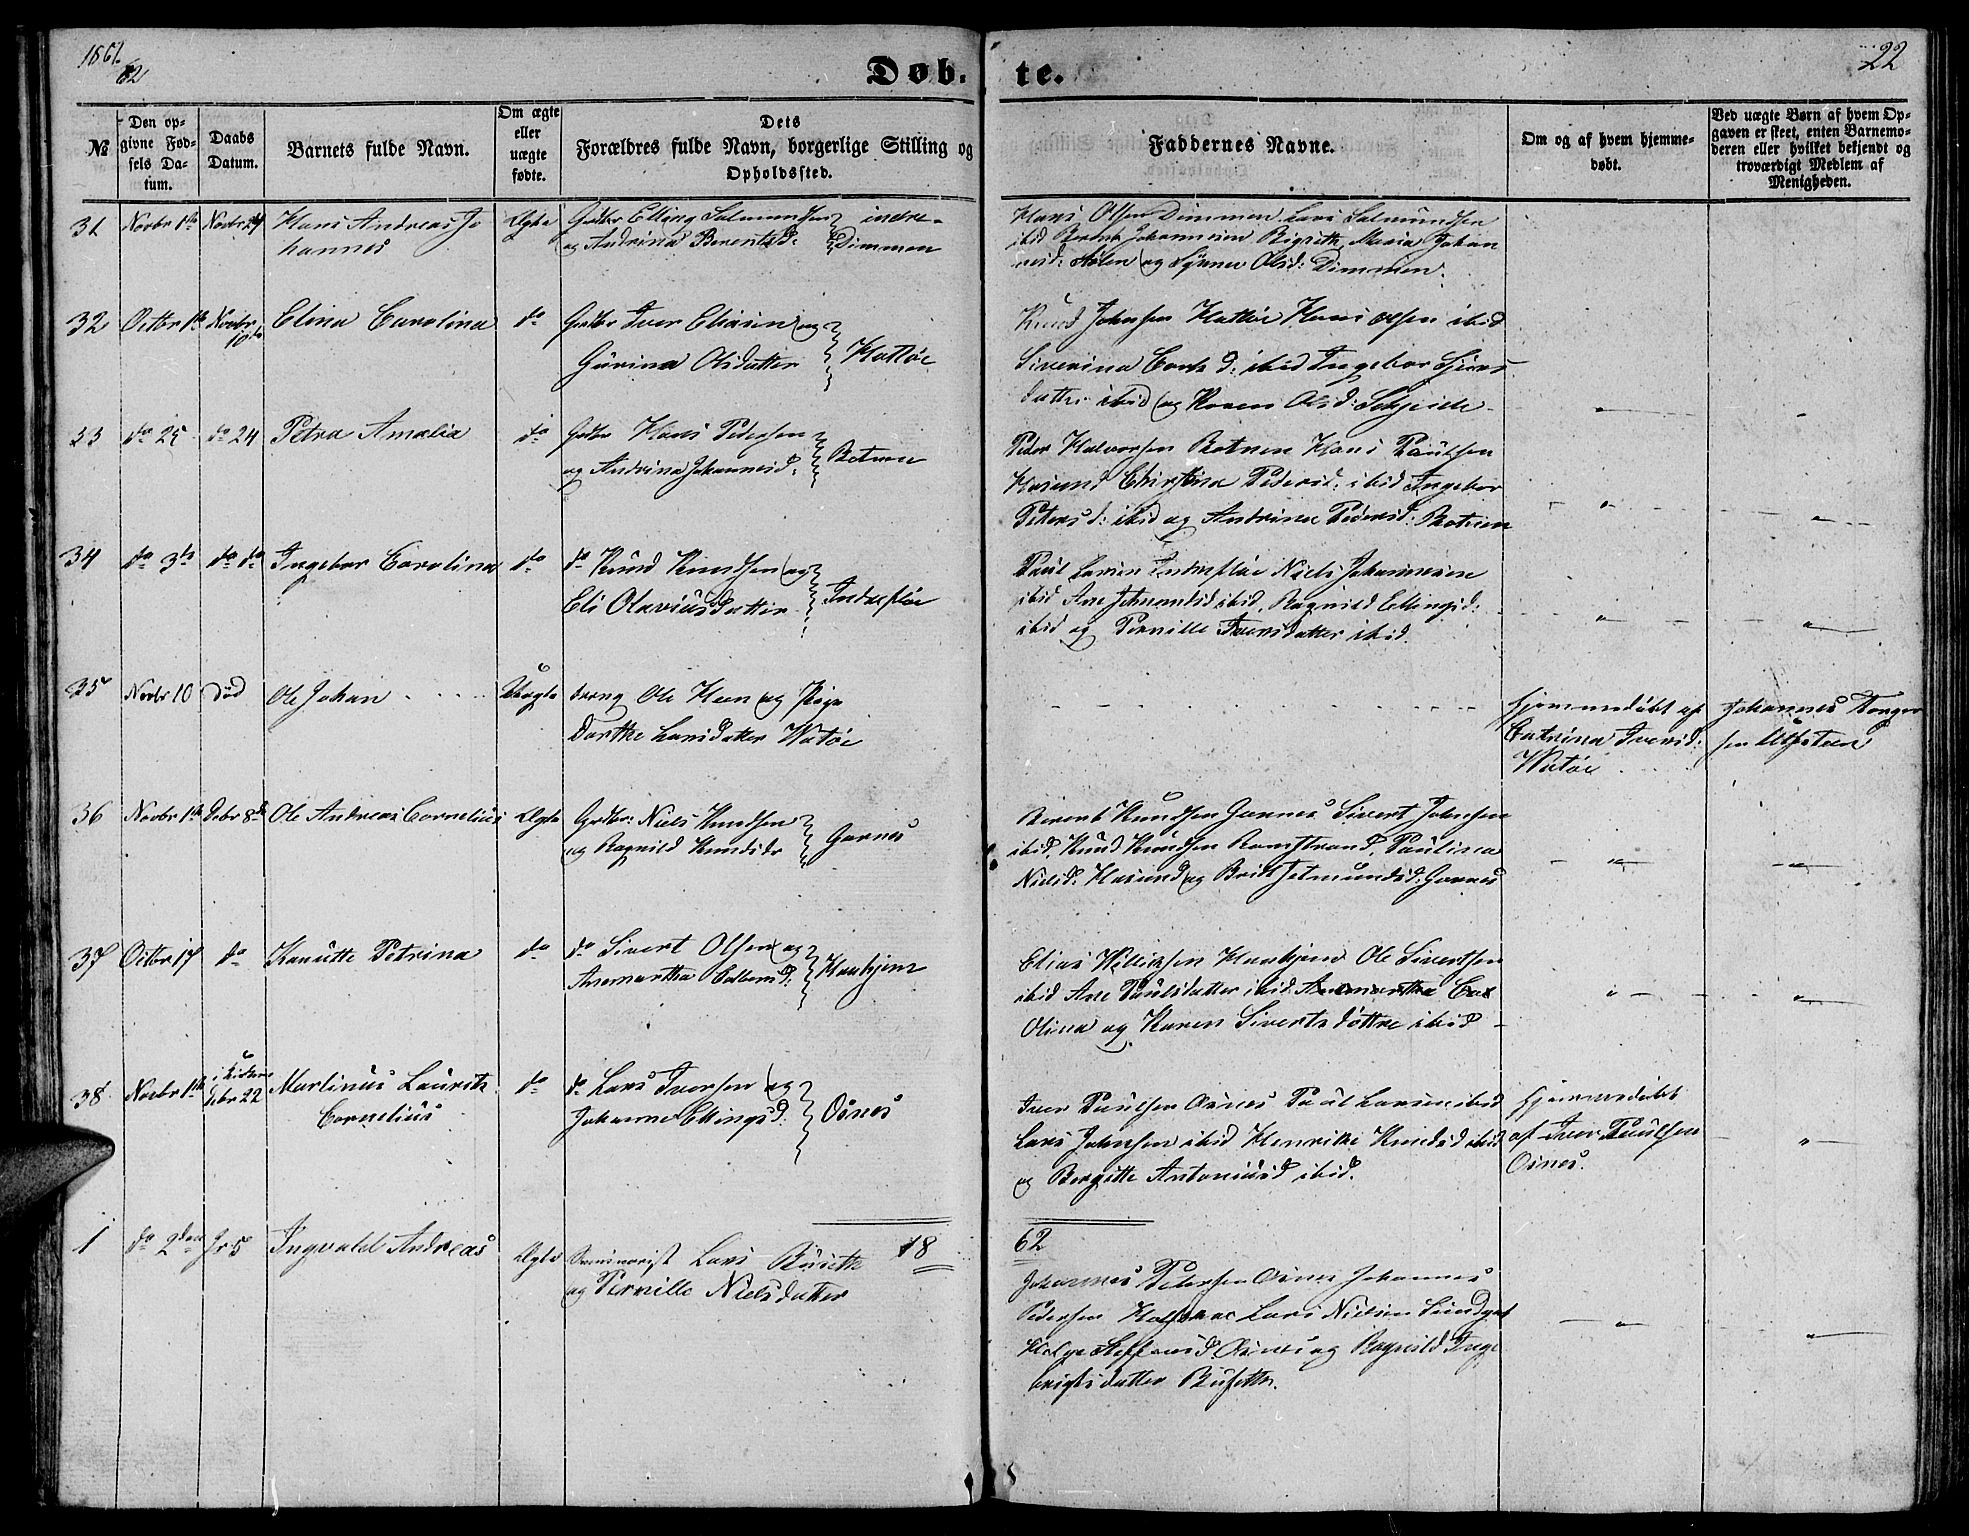 1861.
62
Døb-
te.
22
№
Den op-
givne Fød-
sels Da-
tum.
Daabs
Datum.
Barnets fulde Navn.
Om ægte
eller
uægte
fødte.
Dets
Forældres fulde Navn, borgerlige Stilling og
Opholdssted.
Faddernes Navne.
Om og af hvem hjemme-
døbt.
Ved uægte Børn af hvem Op-
gaven er skeet, enten Barnemo-
deren eller hvilket bekjendt og
troværdigt Medlem af
Menigheden.
31 Novbr 1ste Novbr 24 Hans Andreas Jo
hannes
Ægte Grdbr Elling Salmundsen
og Andrina Berentsd:
indre-
Dimmen
Hans Olsen Dimmen Lars Salmundsen
ibid Berent Johannesen Maria Johan
nesd: og Synneve Olsd: Dimmen.
32 Octbr 1ste Novbr
10de
Elina Carolina do Grdbr Iver Eliasen og
Gurina Olsdatter
Hatløe
Knud Johnsen Hatløe Hans Olsen ibid
Siverina d: ibid Ingebor
datter ibid og Karen Olsd:
33 do 25 do 24 Petra Amalia do Grdbr Hans Pedersen
og Andrina Johannesd:
Botnen
Peder Halvorsen Botnen Hans Paulsen
Hasund Christina Pedersd: ibid Ingebor
Petersd: ibid og Andrina Pedersd: Botnen
34 do 3de do do Ingebor Carolina do do Knud Knudsen og
Eli Olaviusdatter
Indrefløe
Paul Larsen Indrefløe Niels Johannesen
ibid Ane ibid, Ragnild Ellingsd:
ibid og Pernille Iversdatter ibid.
35 Novbr 10 død Ole Johan Uægte dreng Ole Hem og Pige
Dorthe Larsdatter Watøe
hjemmedøbt af
Cathrina Iversd:
Watøe
Johannes
sen Ulfsteen
36 Novbr 1ste Debr 8de Ole Andreas Cornelius Ægte Grdbr: Niels Knudsen
og Ragnild Knudsdr
Garnes
Berent Knudsen Garnes Sivert Johnsen
ibid, Knud Knudsen Ramstrand, Paulina
Nielsd: Hasund og Brith Jetmundsd: Garnes
37 Octbr 17 do Kanutte Petrina do do Sivert Olsen og
Anemartha
Haubjem
Elias Willicksen Haubjem Ole Sivertsen
ibid Ane Paulsdatter ibid Anemartha
Olina og Karen Sivertsdøttre ibid
38 Novbr 1ste i Kirken
Debr 22
Martinus Laurits
Cornelius
do do Lars Iversen og
Johanne Ellingsd.
Osnes
Iver Paulsen Osnes Paul Larsen ibid
Lars Johnsen ibid Henrikke Knudsd ibid
og Bergitte Antoniusd ibid.
hjemmedøbt
af Iver Paulsen
Osnes.
18
62
1 do 2den Jr 5 Ingvald Andreas Ægte Seminarist Lars Busetk
og Pernille Nielsdatter
Johannes Petersen Osnes Johannes
Pedersen Lars Nielsen
Helge Steffensd. Osnes og Ragnild Inge
brigtsdatter Busetk.